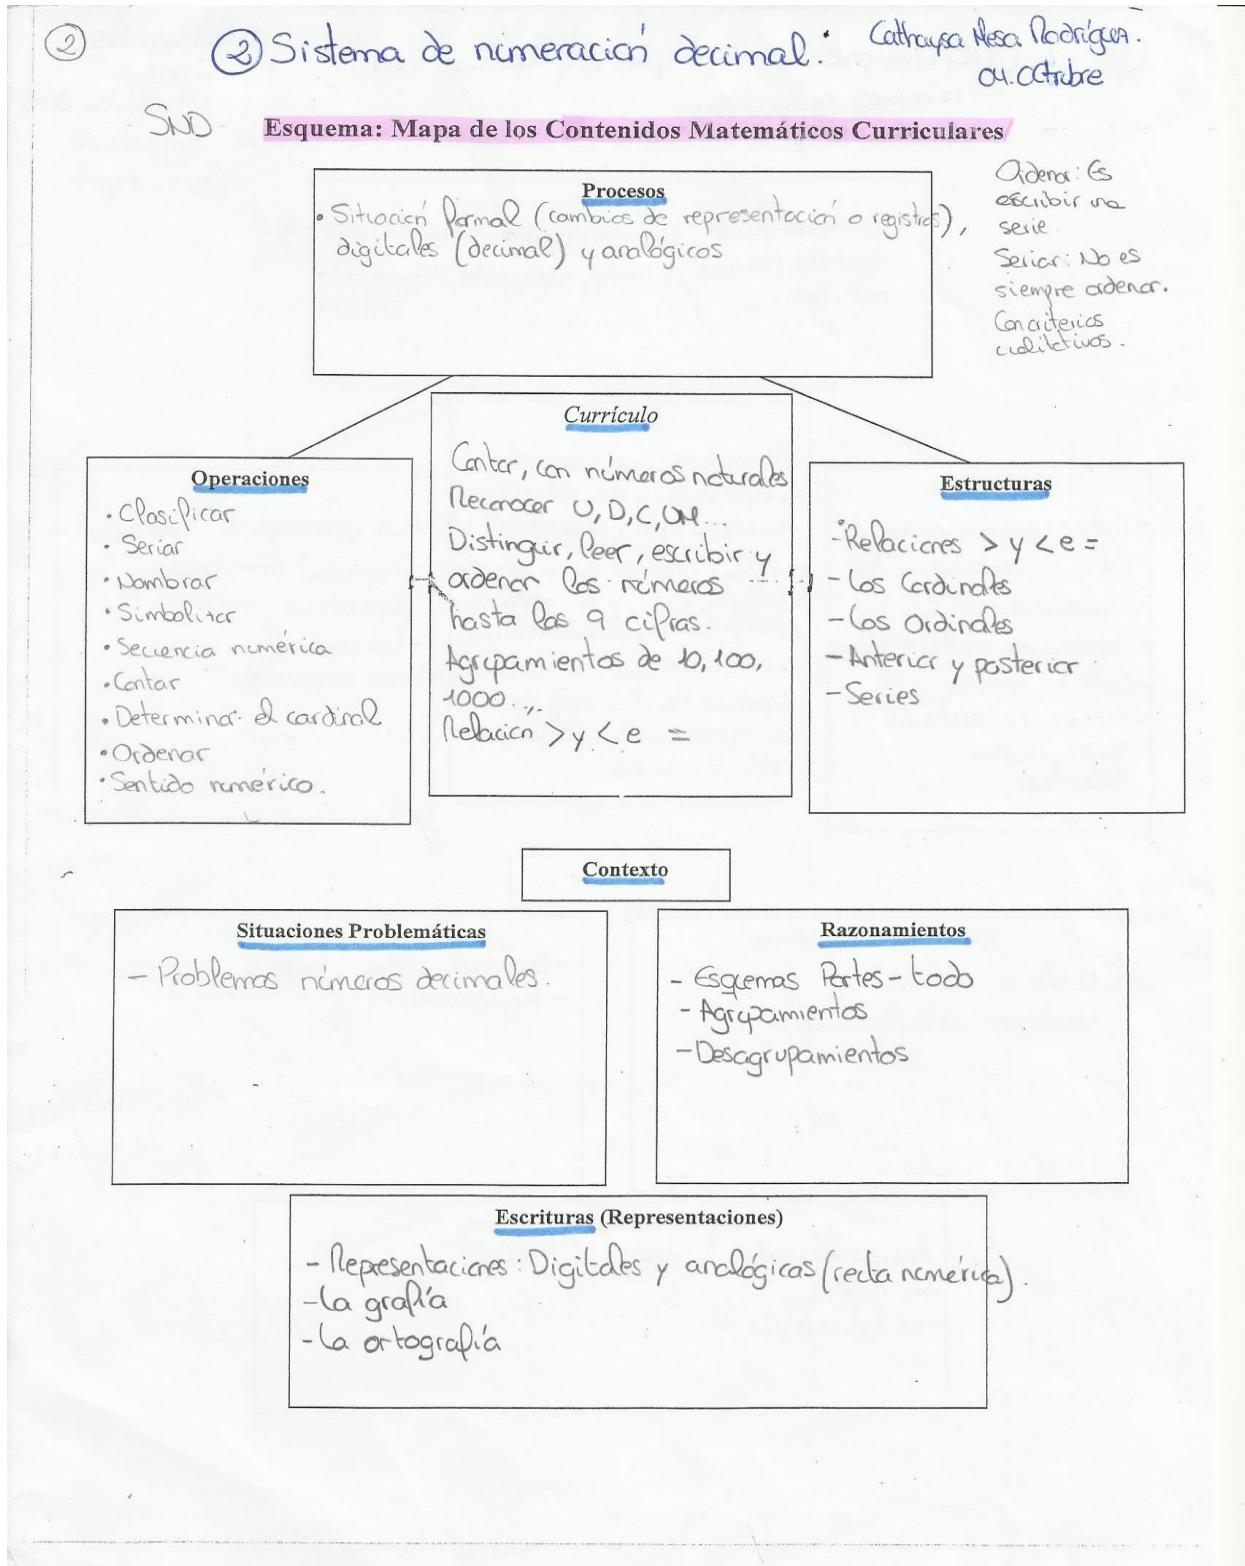 2
② Sistema de numeración decimal:
Cathaysa Mesa Rodríguez.
04. Octubre
SND
Esquema: Mapa de los Contenidos Matemáticos Curriculares
Ordenar: Es
escribir una
serie.
Seriar: No es
siempre ordenar.
Con criterios
cualitativos.
Procesos
• Situación formal (cambios de representación o registros),
digitales (decimal) y analógicos
Operaciones
• Clasificar
• Seriar
• Nombrar
• Simbolizar
• Secuencia numérica
• Contar
• Determinar el cardinal
• Ordenar
• Sentido numérico.
Currículo
Contar, con números naturales
Reconocer U, D, C, UM...
Distinguir, leer, escribir y
ordenar los números
hasta las 9 cifras.
Agrupamientos de 10, 100,
1000...
Relación > y < e =
Estructuras
- Relaciones > y < e =
- Los Cardinales
- Los Ordinales
- Anterior y posterior
- Series
Contexto
Situaciones Problemáticas
- Problemas números decimales.
Razonamientos
- Esquemas Partes - todo
- Agrupamientos
- Desagrupamientos
Escrituras (Representaciones)
- Representaciones: Digitales y analógicas (recta numérica).
- La grafía
- La ortografía